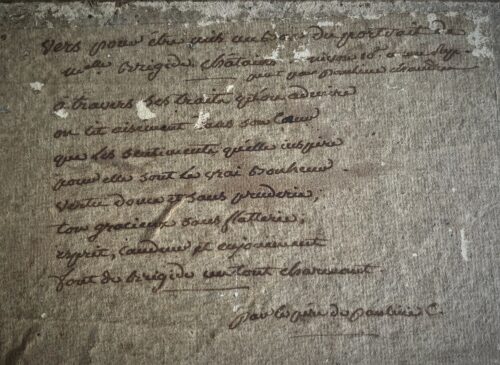 vers pour être mis au bas du portrait de
m.elle brigide Châtain
peint par pauline chaudru
à travers ses traits qu'on admire
on lit aisement dans son Cœur
que les sentiments qu'elle inspire
pour elle sont le vrai bonheur.
vertu douce et sans pruderie,
ton gracieux sans flatterie,
esprit, candeur et enjouement
font de brigide un tout charmant.
par le père de pauline C.